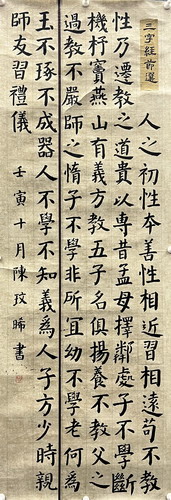 三字經節選
人之初性本善性相近習相遠苟不教
性乃遷教之道貴以專昔孟母擇鄰處子不學斷
機杼竇燕山有義方教五子名俱揚養不教父之
過教不嚴師之惰子不學非所宜幼不學老何為
玉不琢不成器人不學不知義為人子方少時親
師友習禮儀 壬寅十月陳玟晞書